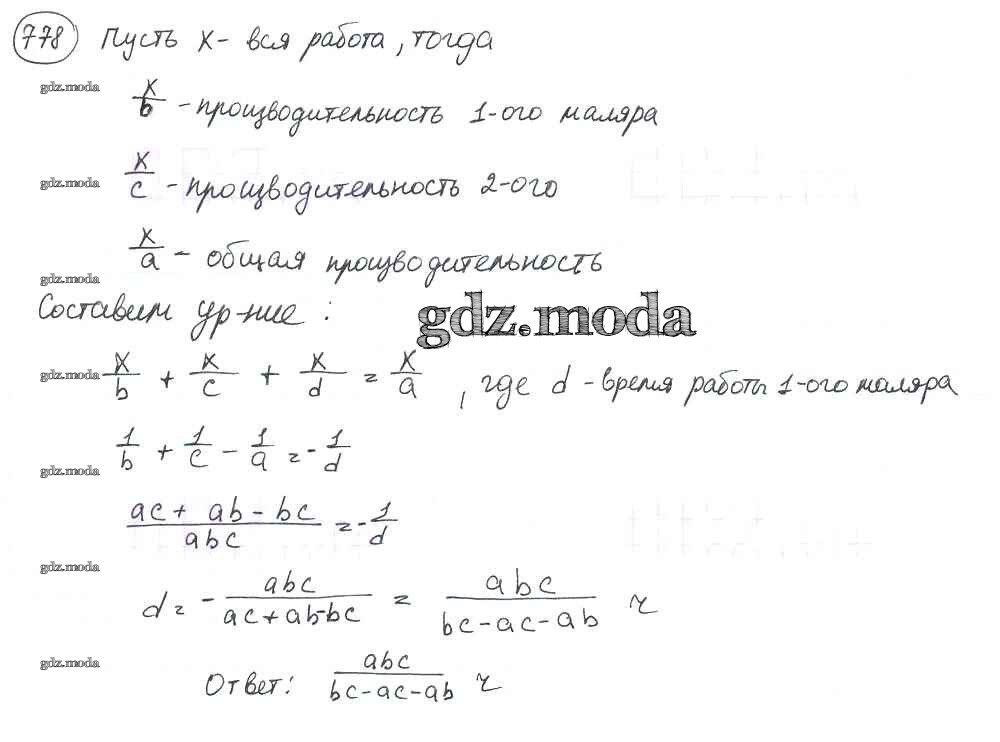 778 Пусть x - вся работа, тогда
gdz.moda
x/b - производительность 1-ого маляра
gdz.moda
x/c - производительность 2-ого
x/a - общая производительность
gdz.moda
Составим ур-ние:
gdz.moda
gdz.moda
x/b + x/c + x/d = x/a, где d - время работы 1-ого маляра
1/b + 1/c - 1/a = - 1/d
gdz.moda
ac + ab - bc/abc = - 1/d
gdz.moda
d = - abc/ac + ab - bc = abc/bc - ac - ab ч
gdz.moda
Ответ: abc/bc - ac - ab ч